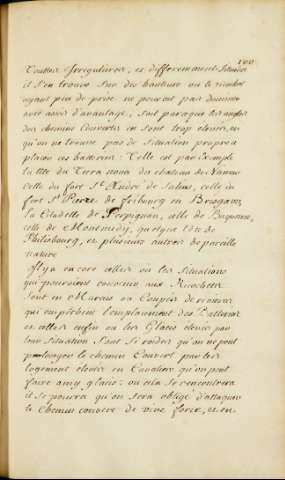 100
Toutes Irregulieres, et differemment Situées
il s'en trouve Sur des hauteurs ou le ricochet
ayant peu de prise ne pouvant pas dominer
avec assés d'avantage, soit parceque les angles
des chemins Couverts en sont trop élevés, ou
qu'on ne trouve pas de situation propre a
placer ces batteries: Telle est par Exemple
la tête du Terra nova du chateau de Namur
Celle du fort S.t André de Salins, celle du
fort S.t Pierre de fribourg en Brisgaw,
La Citadelle de Perpignan, celle de Bayonne,
celle de Montmedy, quelque Tête de
Philisbourg, et plusieurs autres de pareille
nature
Il y a encore celles ou les Situations
qui pourroient convenir aux Ricochets
Sont en Marais ou Coupés de rivieres
qui empêchent l'emplacement des Batteries
et celles enfin ou les Glacis elevés par
leur Situation Sont Si roides qu'on ne peut
prolonger le chemin Couvert par les
logement elevés en Cavaliers qu'on peut
faire a my glacis: ou cela Se rencontrera
il Se pourra qu'on Sera obligé d'attaquer
le Chemin couvert de vive force, et en